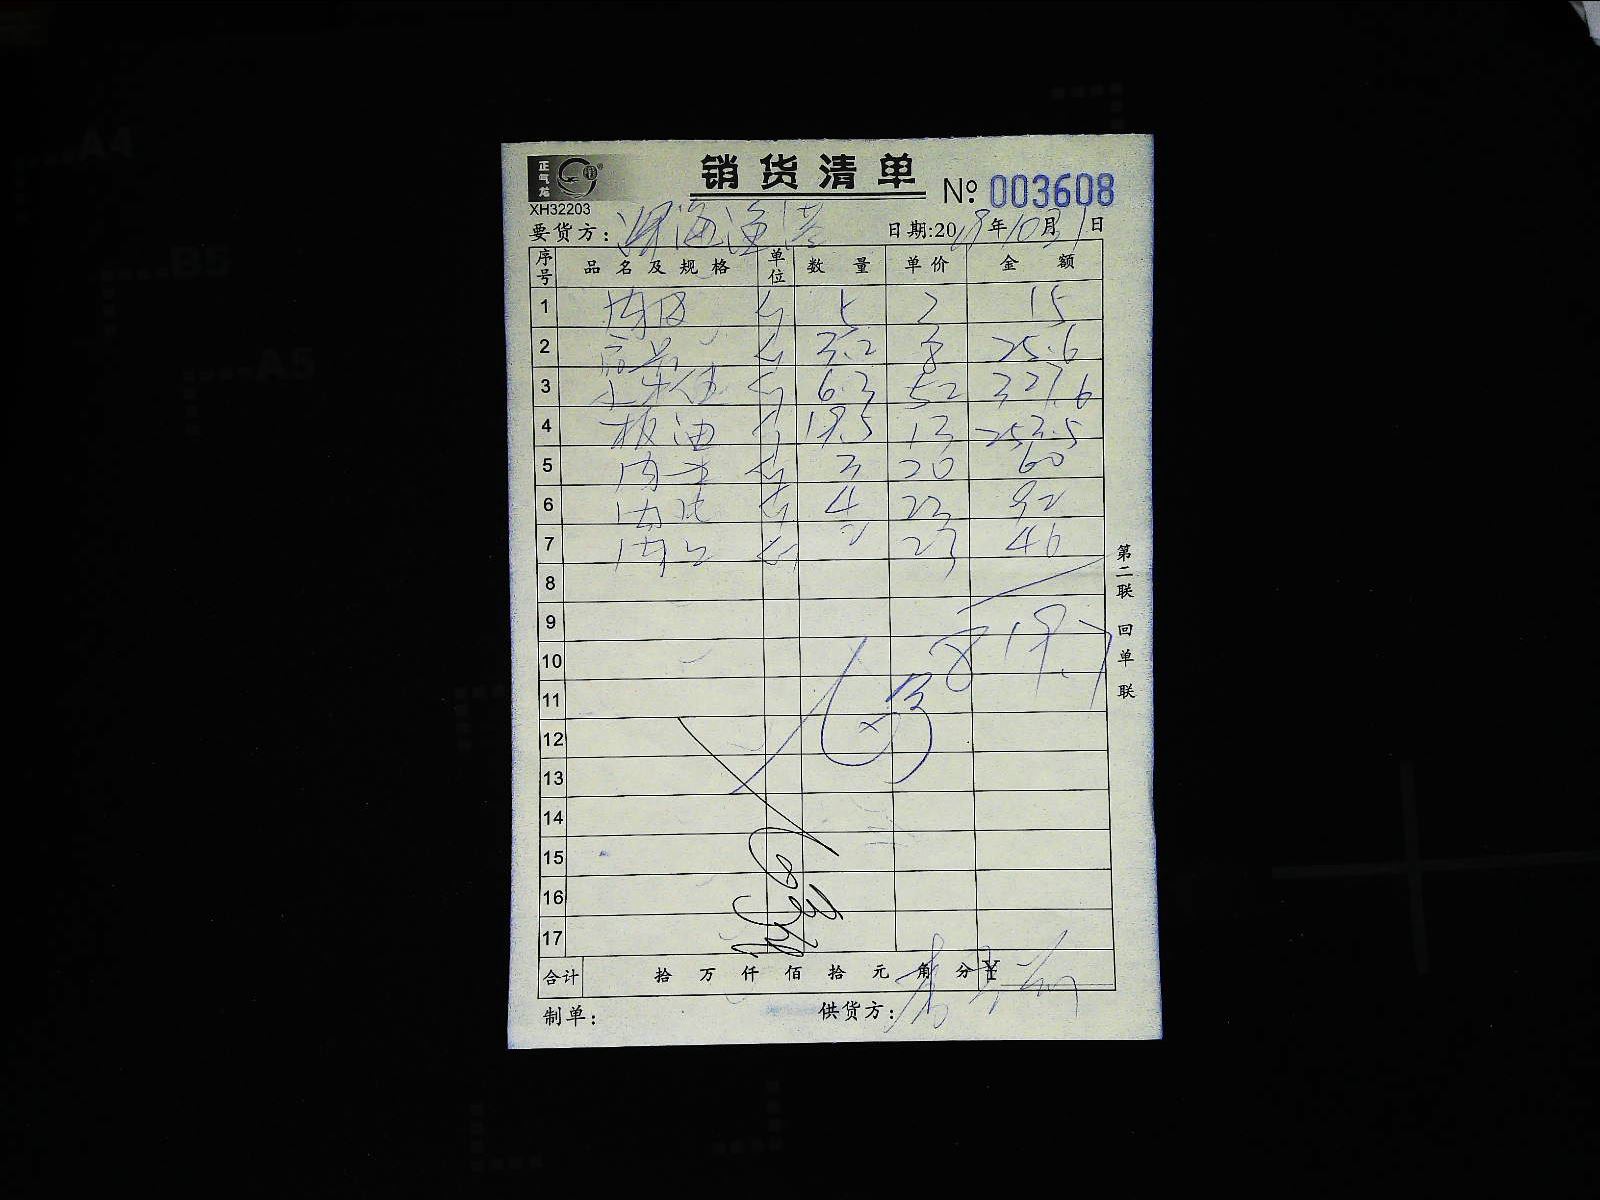 正气龙
销货清单
XH32203
№ 003608
要货方: 深海渔港 日期:20 年10月31日
序号 品名及规格 单位 数量 单价 金额
1 肉皮 斤 5 3 15
2 斤 3.2 8 25.6
3 斤 6.3 52 327.6
4 板油 斤 19.5 13 253.5
5 斤 3 20 60
6 斤 4 23 92
7 斤 2 23 46
8
9
819.7
10
11
12
13
14
15
16
17
合计 拾 万 仟 佰 拾 元 角 分 ¥
制单: 供货方:
第二联 回单联
A4
B5
A5